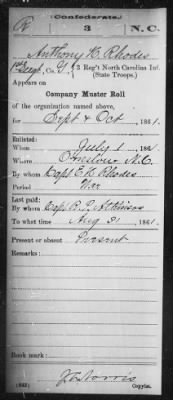 Confederate
R 3 N.C.
Anthony W. Rhodes
1st Sergt, Co. G, 3 Reg't North Carolina Inf.
(State Troops.)
Appears on
Company Muster Roll
of the organization named above,
for Sept & Oct, 1861.
Enlisted:
When July 1, 1861.
Where Onslow N.C.
By whom Capt E. H. Rhodes
Period War
Last paid:
By whom Capt R. P. Atkinson
To what time Aug 31, 1861.
Present or absent Present
Remarks:
Book mark:
(642)
Morris
Copyist.